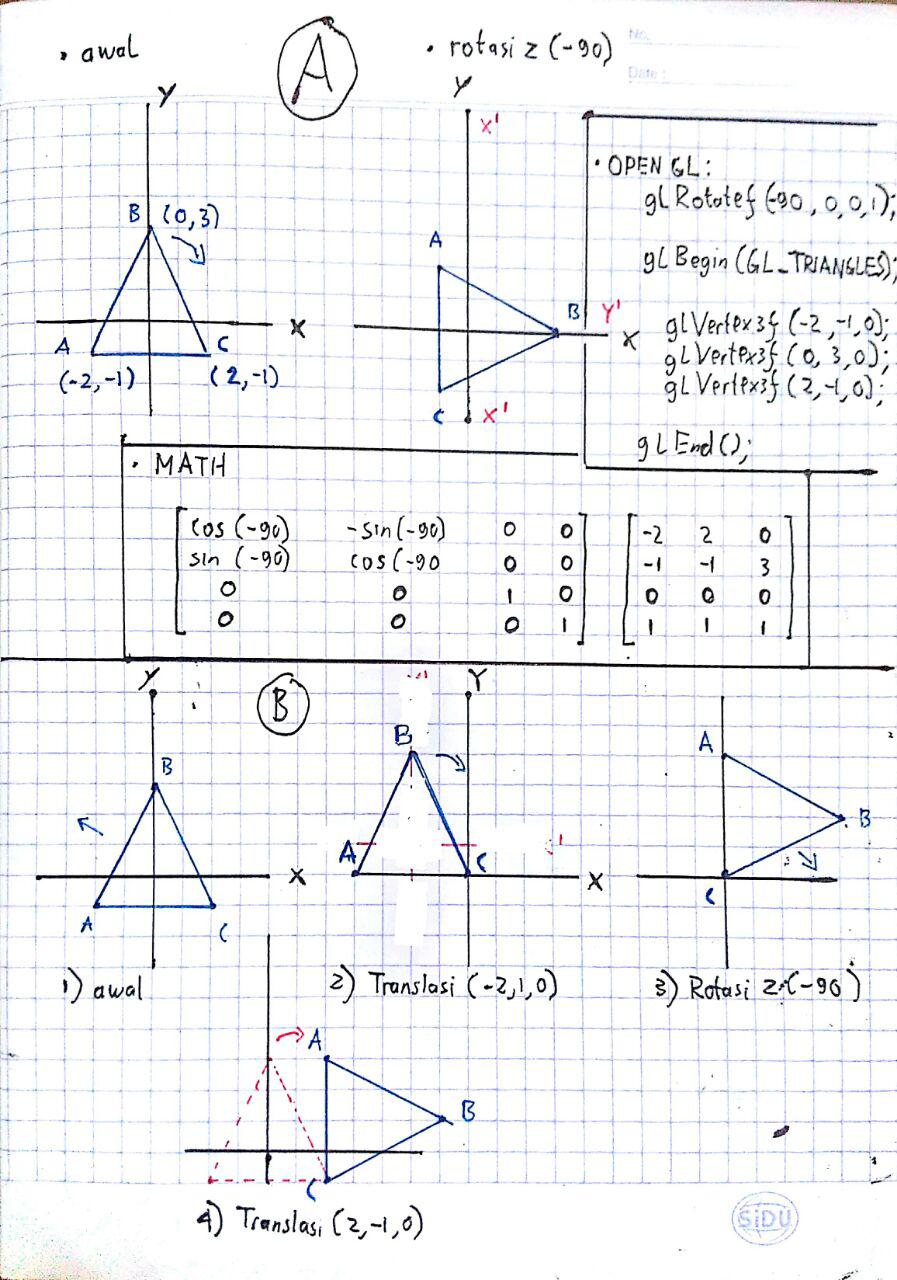 • awal
A
• rotasi z (-90)
No.
Date :
Y
B (0,3)
X
A
C
(-2,-1)
(2,-1)
Y
X'
A
B
Y'
X
C
X'
• OPEN GL:
glRotatef (-90, 0, 0, 1);
glBegin (GL_TRIANGLES);
glVertex3f (-2, -1, 0);
glVertex3f (0, 3, 0);
glVertex3f (2, -1, 0);
glEnd();
• MATH
cos (-90) -sin (-90) 0 0
sin (-90) cos (-90 0 0
0 0 1 0
0 0 0 1
-2 2 0
-1 -1 3
0 0 0
1 1 1
B
Y
B
X
A
C
1) awal
Y
B
A
C
X
2) Translasi (-2,1,0)
A
B
C
3) Rotasi z (-90)
A
B
C
4) Translasi (2,-1,0)
SiDU